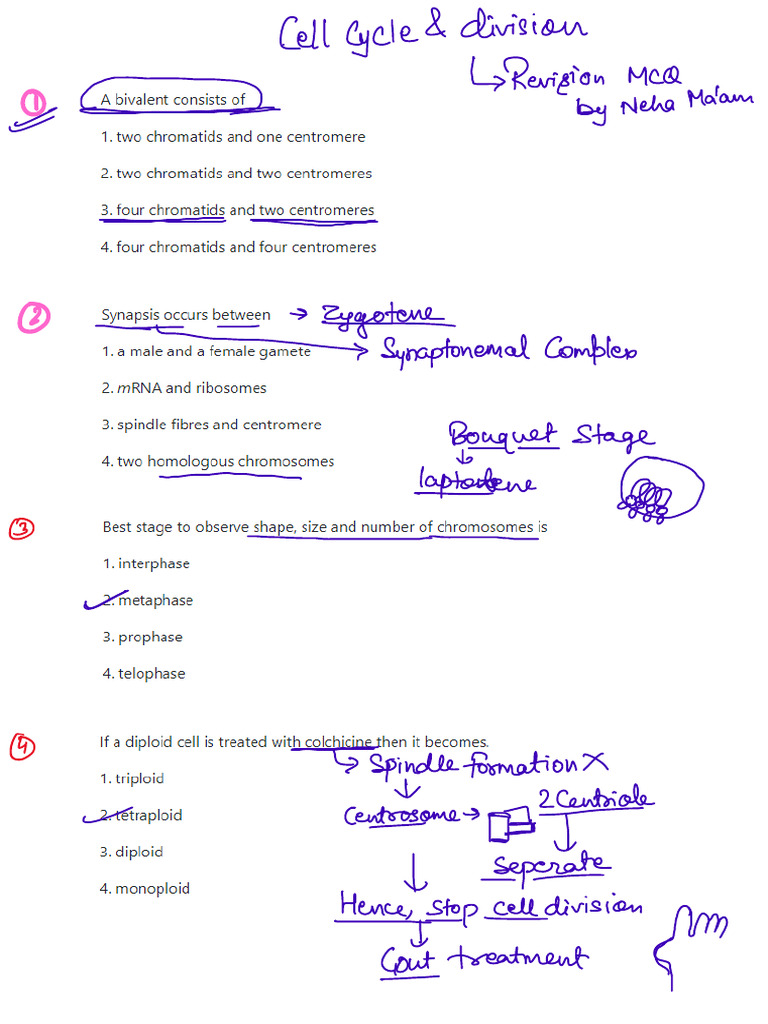 Cell Cycle & division
↳ Revision MCQ
by Neha Ma'am
① A bivalent consists of
1. two chromatids and one centromere
2. two chromatids and two centromeres
3. four chromatids and two centromeres
4. four chromatids and four centromeres
② Synapsis occurs between → Zygotene
1. a male and a female gamete → Synaptonemal Complex
2. mRNA and ribosomes
3. spindle fibres and centromere
Bouquet Stage
4. two homologous chromosomes
↓
laptotene
③ Best stage to observe shape, size and number of chromosomes is
1. interphase
2. metaphase
3. prophase
4. telophase
④ If a diploid cell is treated with colchicine then it becomes.
↳ Spindle formation X
1. triploid
↓
2. tetraploid
Centrosome → 2 Centriole
↓
3. diploid
Seperate
4. monoploid
↓
Hence, stop cell division
↓
Gout treatment